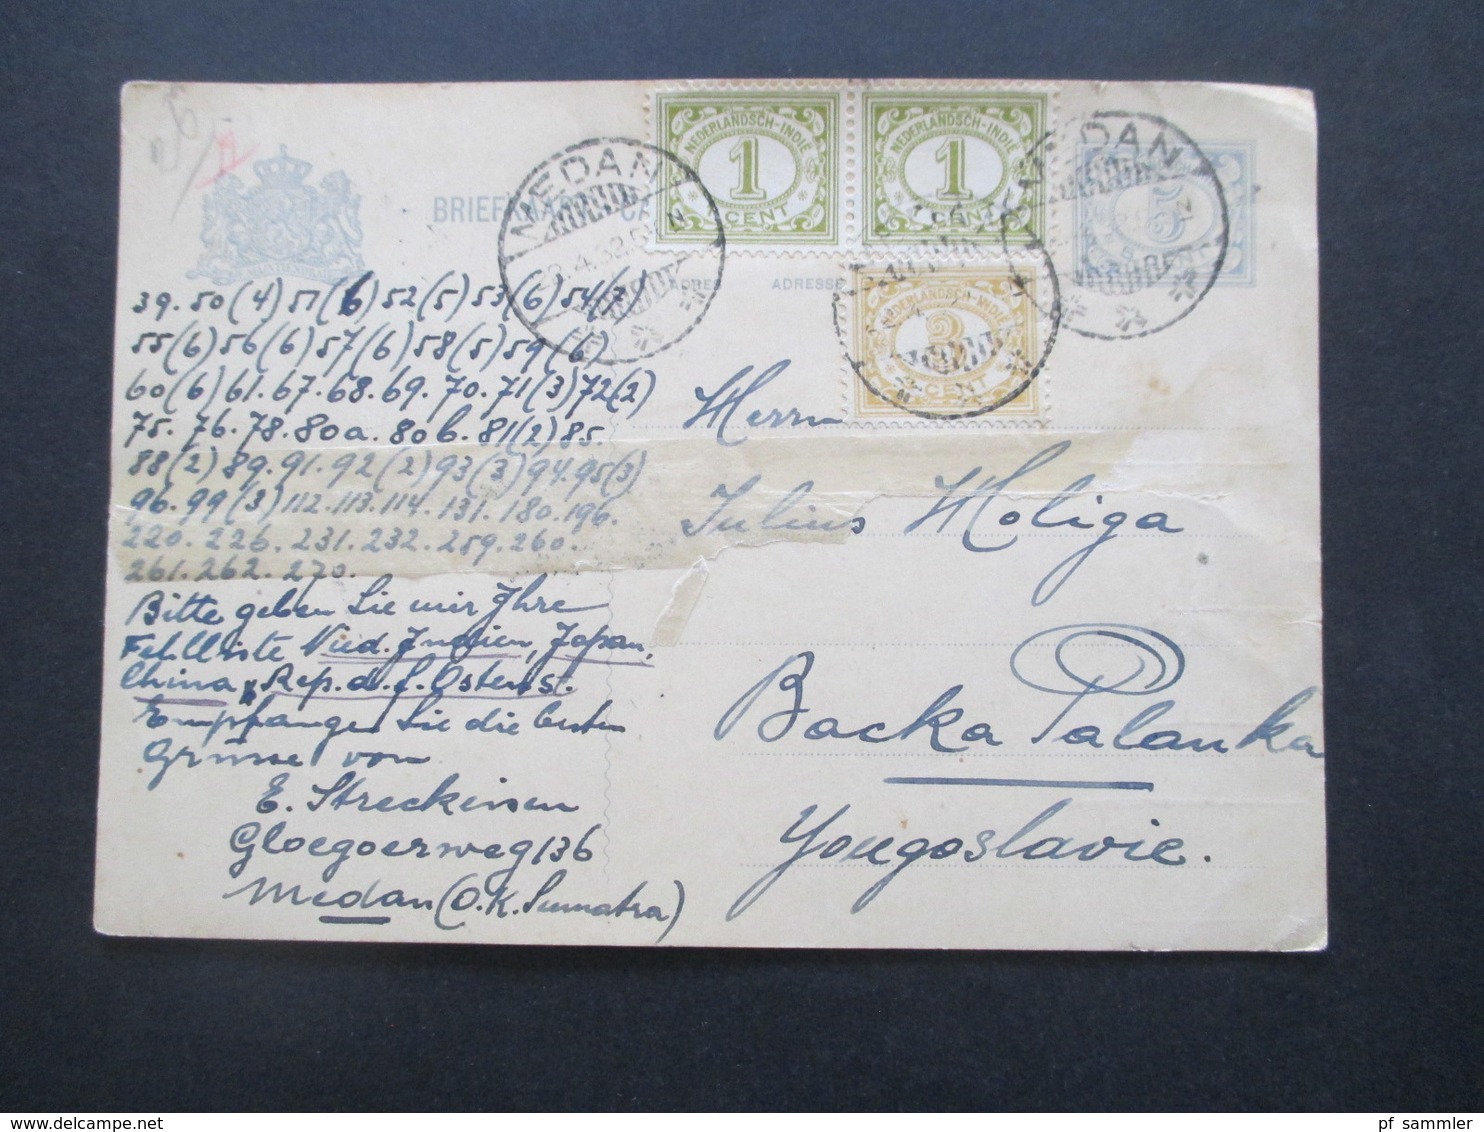 BRIEFKAART
NEDERLANDSCH-INDIË
1
1 CENT
NEDERLANDSCH-INDIË
1
1 CENT
NEDERLANDSCH-INDIË
3
CENT
5
CENT
MEDAN
MEDAN
ADRES
ADRESSE
39. 50 (4) 51 (6) 52 (5) 53 (6) 54
55 (6) 56 (6) 57 (6) 58 (5) 59 (6)
60 (6) 61. 67. 68. 69. 70. 71 (3) 72 (2)
75. 76. 78. 80a. 80b. 81 (2) 85.
88 (2) 89. 91. 92 (2) 93 (3) 94. 95 (3)
96. 99 (3) 112. 113. 114. 131. 180. 196.
220. 226. 231. 232. 259. 260.
261. 262. 270.
Bitte geben Sie mir Ihre
Fehlliste Nied. Indien, Japan,
China, Rep. d. f. Ostens.
Empfangen Sie die besten
Grüsse von
E. Streckeisen
Gloegoerweg 136
Medan (O.K. Sumatra)
Herrn
Julius Moliga
Backa Palanka
Yougoslavie.
pf sammler